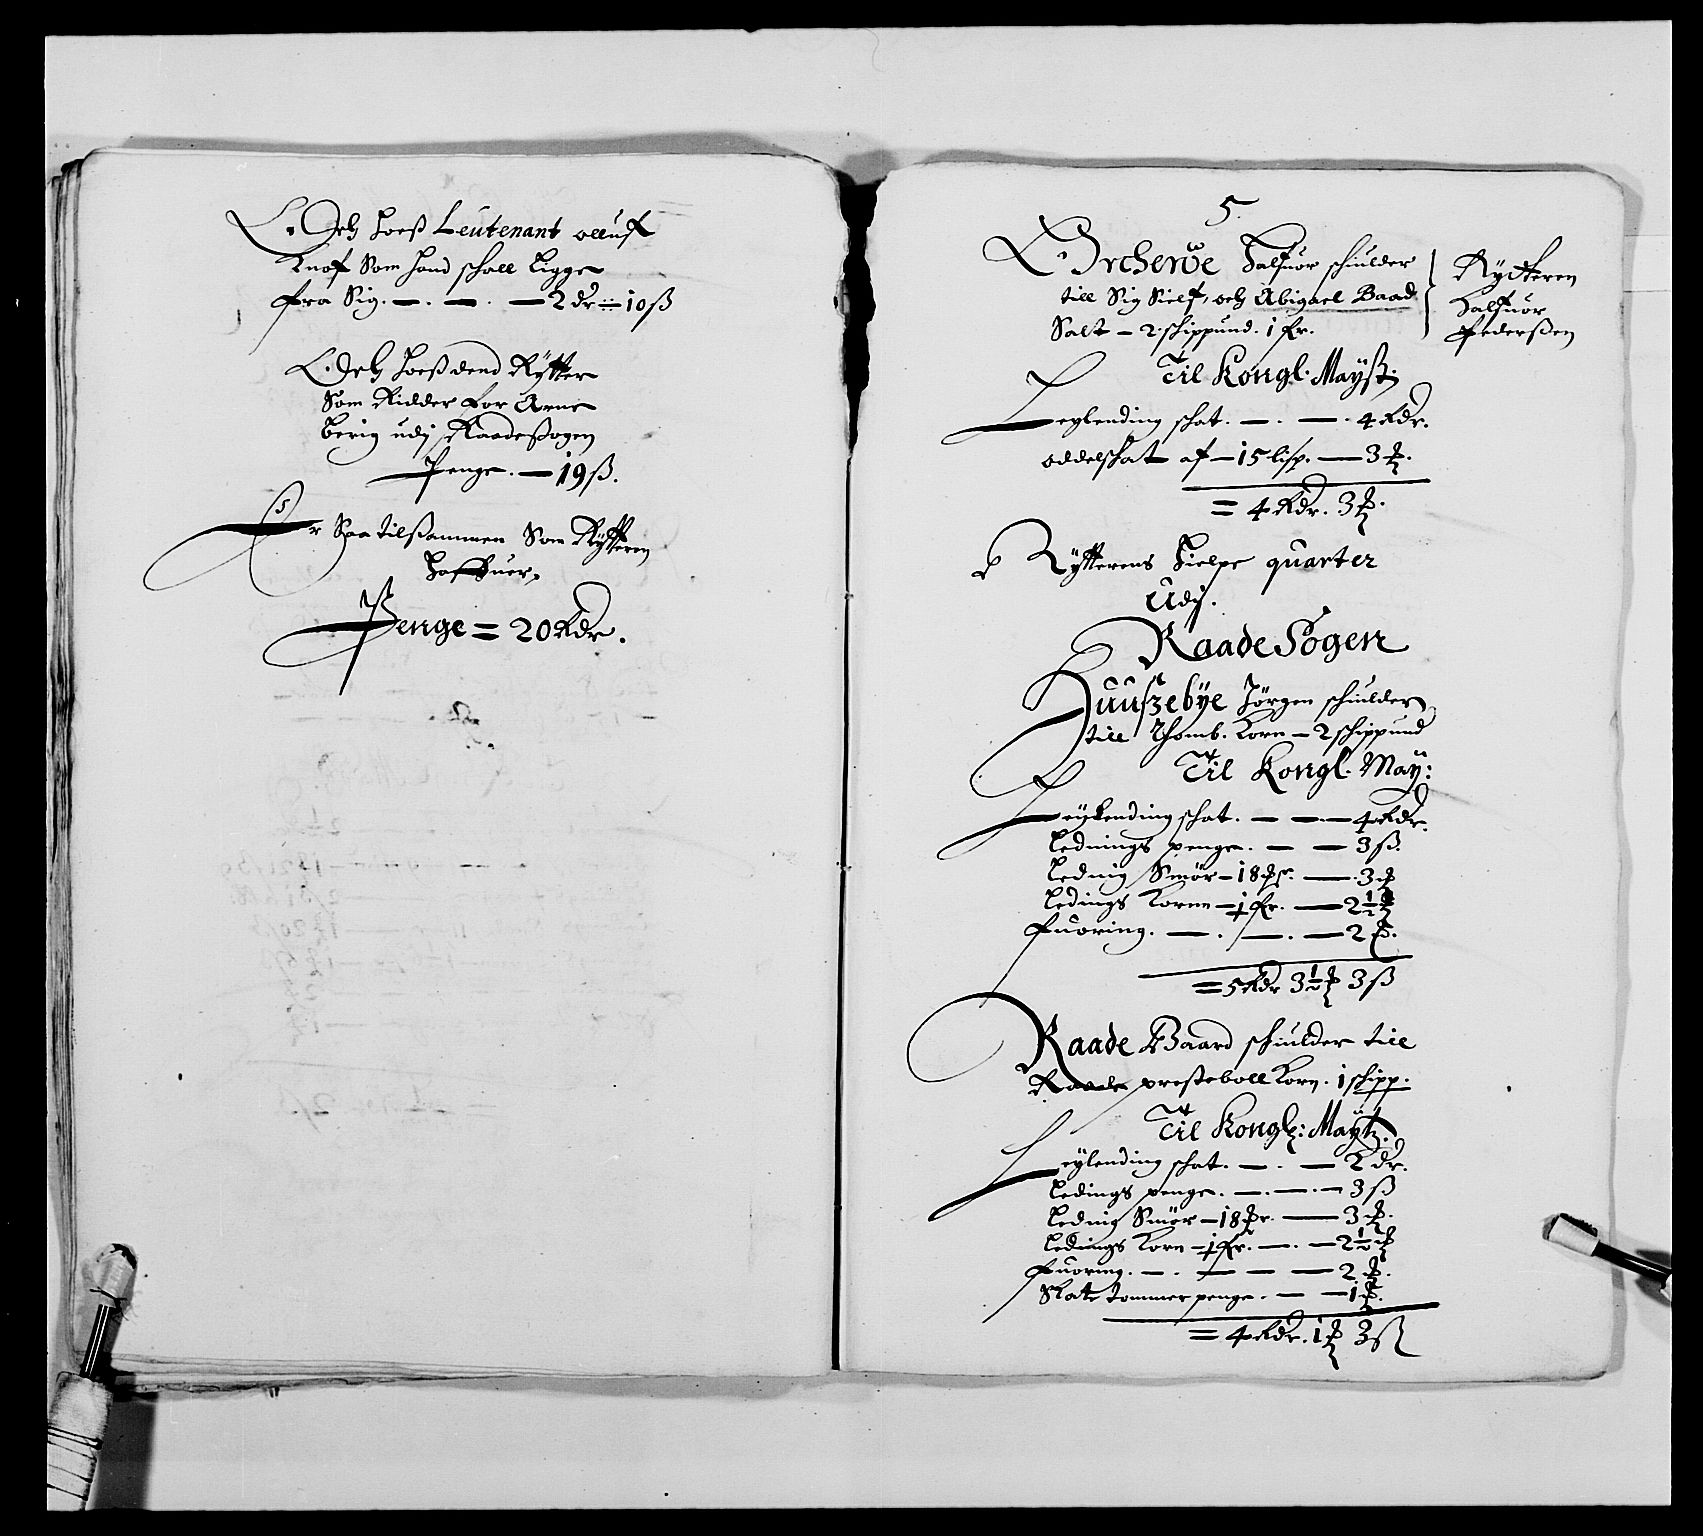 Och hoeß Leutenant olluf
Knof Som hand schall ligge
fra Sig. — . — . — 2 dr :: 10 ß
Och hoeß dend Rÿtter
Som Ridder for Arne
berig udj Raadeßogen
Penge. — 19 ß.
Er Saa tilßammen Som Rÿtteren
haffuer,
Penge = 20 Rdr.
5.
Orcheröe Halfuor schiulder
till Sig Sielf, och Abigael Baad
Salt — 2. schippund. 1 fr.
Rÿdtteren
Halfuor
Pederßen
Til Kongl. Maÿßt:
Leÿlending schat. — . — . 4 Rdr.
oddelschat af — 15 lisp. — 3
= 4 Rdr. 3
Rÿtterens hielpe quarter
Udj.
Raade Sogen
Huusebÿe Jörgen schiulder
till Thomb. Korn — 2 schippund
Til Kongl. Maÿ:
Leÿlending schat. — — 4 Rdr.
lednings penge. — — 3 ß.
lednig Smör — 18 — 3
ledings Korn — 1 fr. — 2½
fuoring. — . — . — 2
= 5 Rdr 3½ 3 ß
Raade Baard schiulder till
Raade presteboll Korn. 1 schipp.
Til Kongl: Maÿtz.
Leÿlending schat. — . — 2 dr.
ledings penge. — . — . — 3 ß
lednig Smör — 18 — 3
ledings Korn — 1 fr. — . — 2½
fuoring. — . — — — 2
Skatetømmer penge. — — 1
= 4 Rdr. 1 3 ß